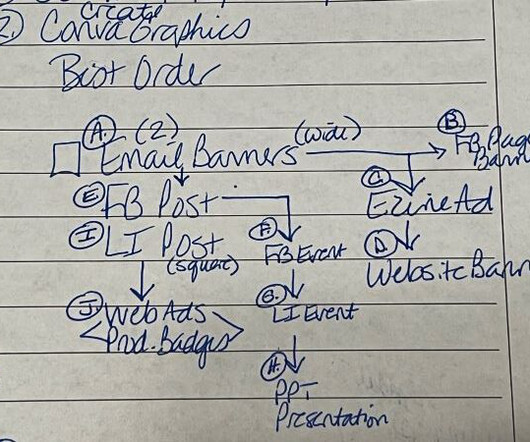 Create
2. Canva Graphics
Best Order
A. (2) (wide) B.
Email Banners FB Page
Bann
C.
E FB Post Ezine Ad
I LI Post F. D
(square) FB Event Website Bann
J Web Ads G.
Prod. Badges LI Event
H.
PPT
Presentation